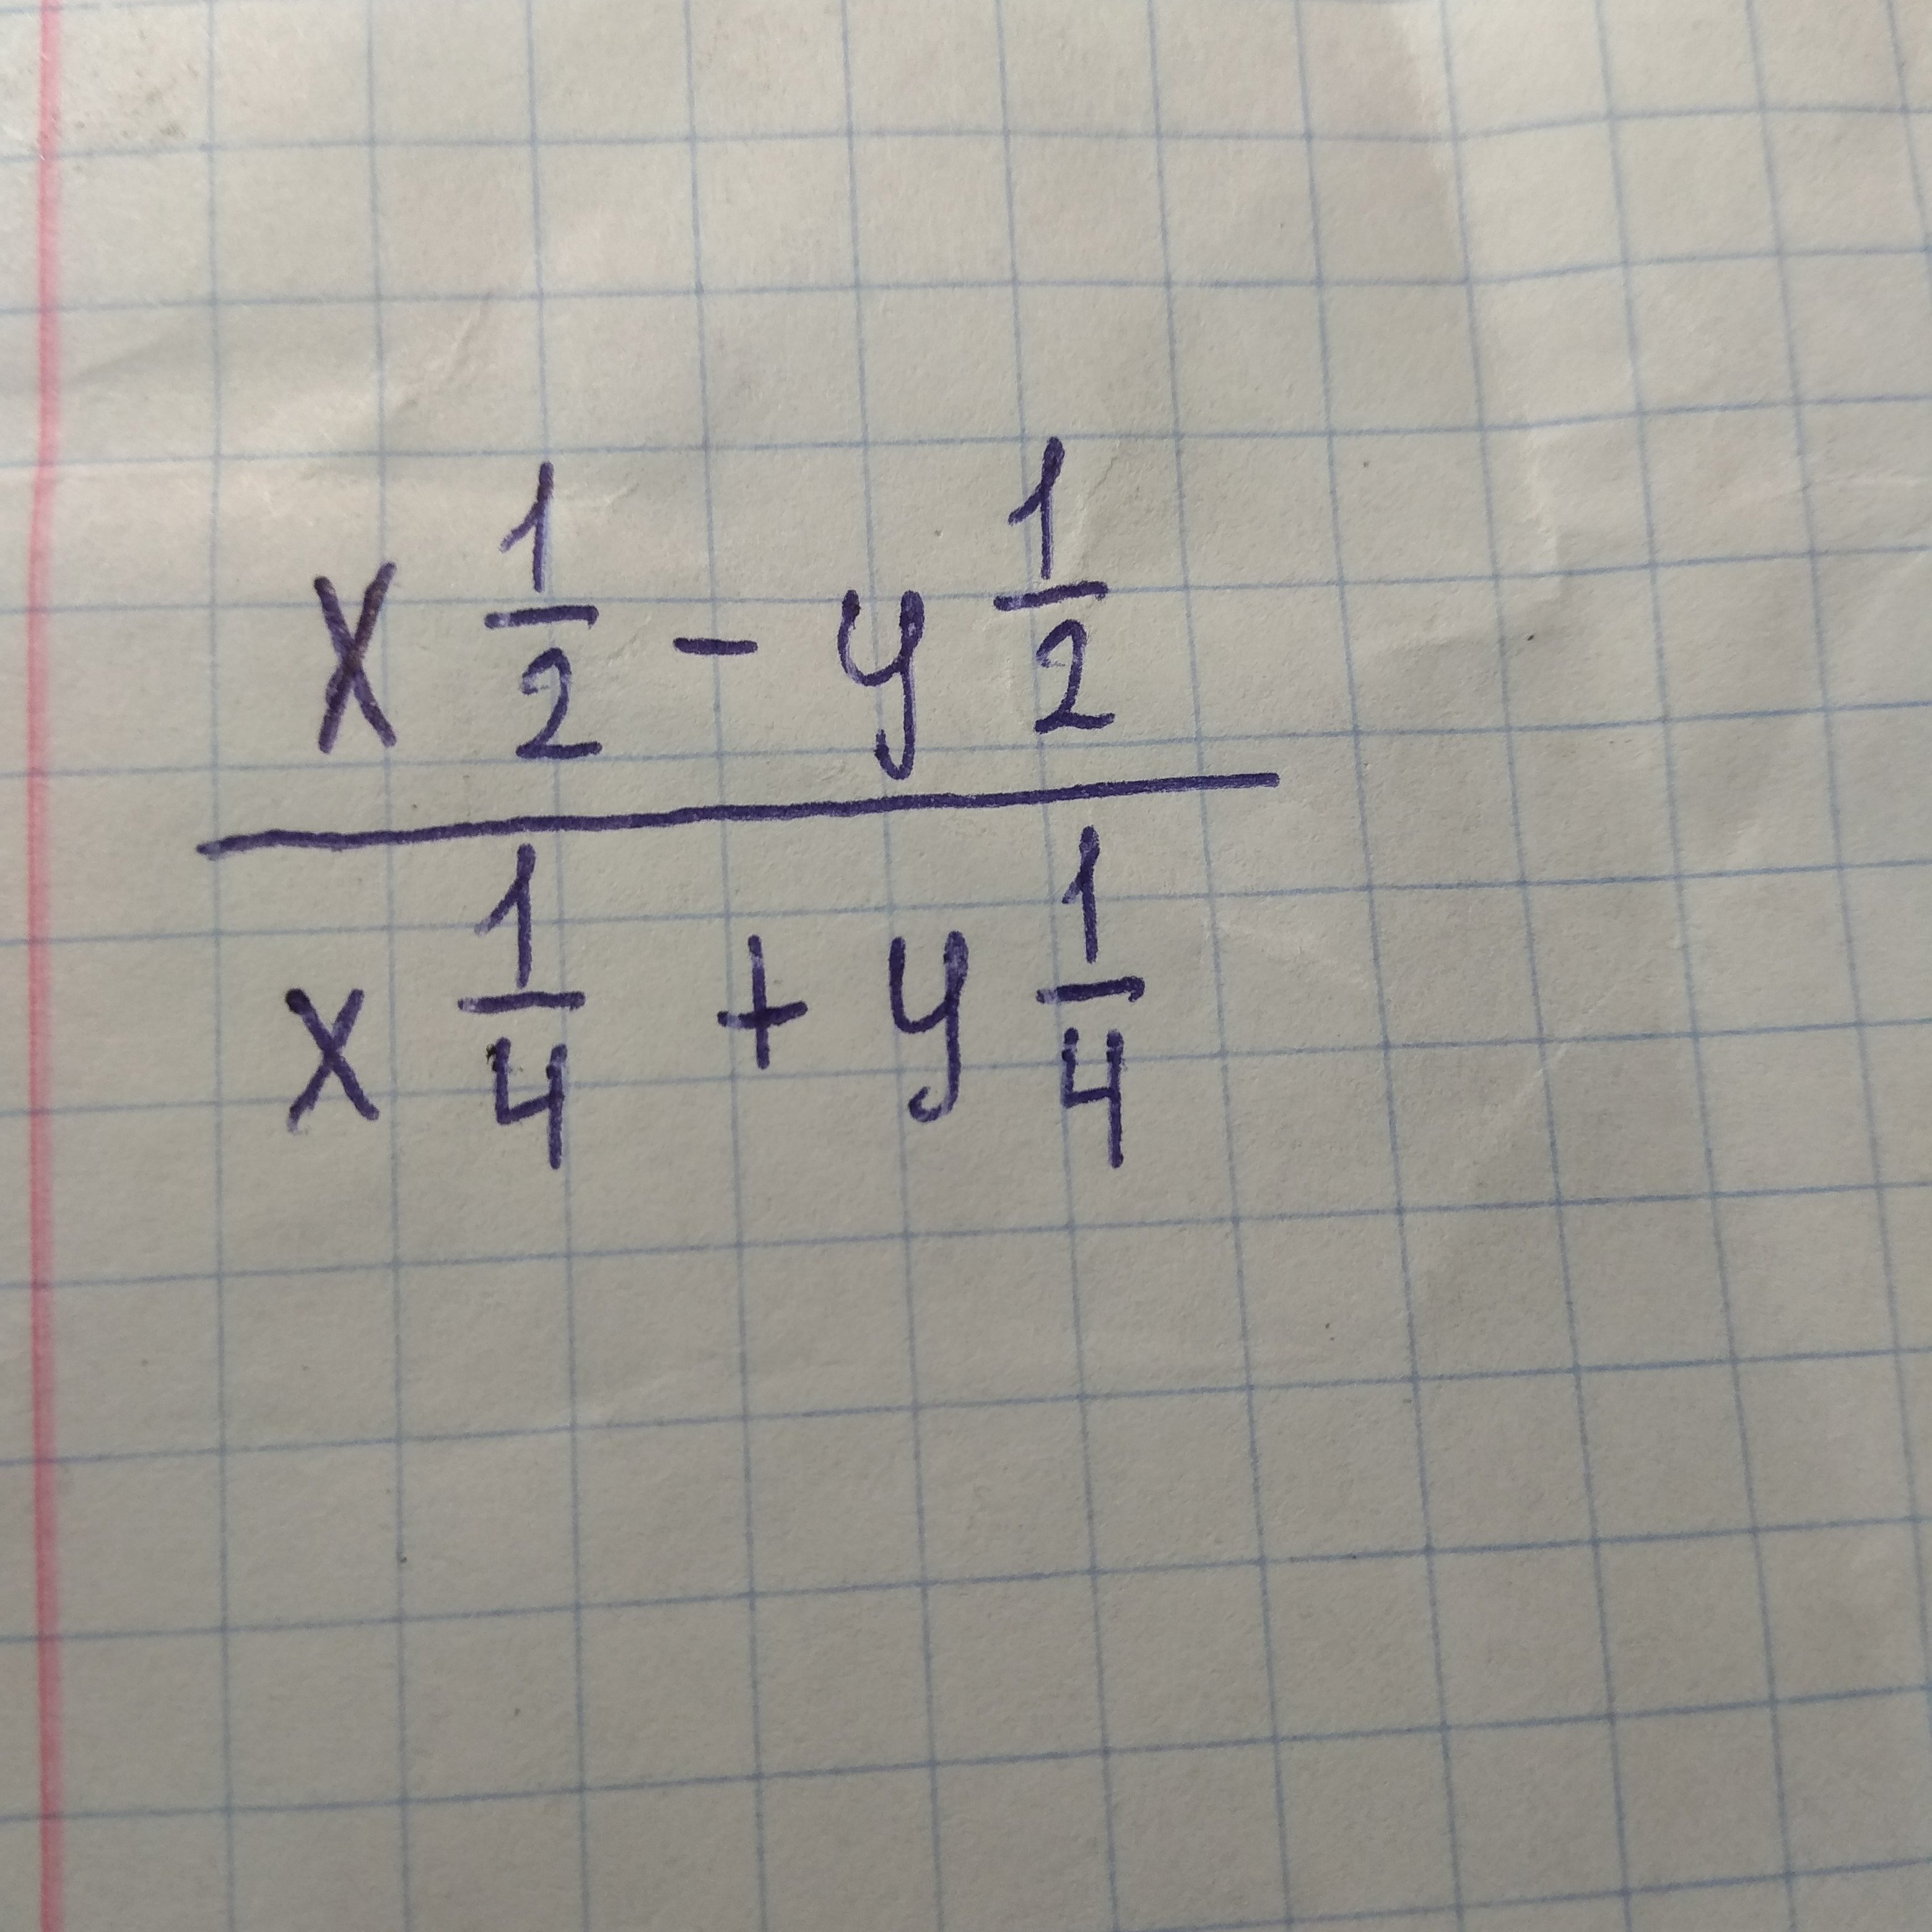 x^{\frac{1}{2}} - y^{\frac{1}{2}}
x^{\frac{1}{4}} + y^{\frac{1}{4}}